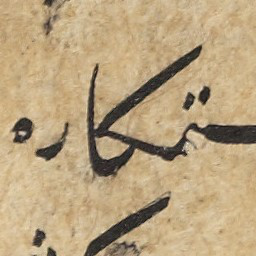 ستمکاره